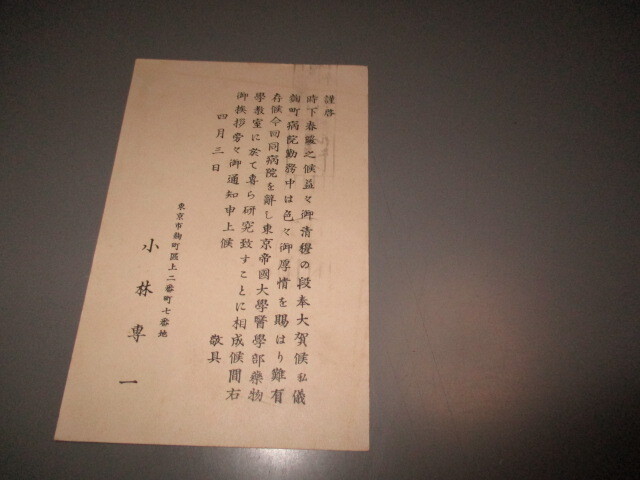 謹啓
時下春暖之候益々御清穆の段奉大賀候私儀
麴町病院勤務中は色々御厚情を賜はり難有
存候今回同病院を辭し東京帝國大學醫學部藥物
學敎室に於て專ら硏究致すことに相成候間右
御挨拶旁々御通知申上候
敬具
四月三日
東京市麴町區上二番町七番地
小林專一